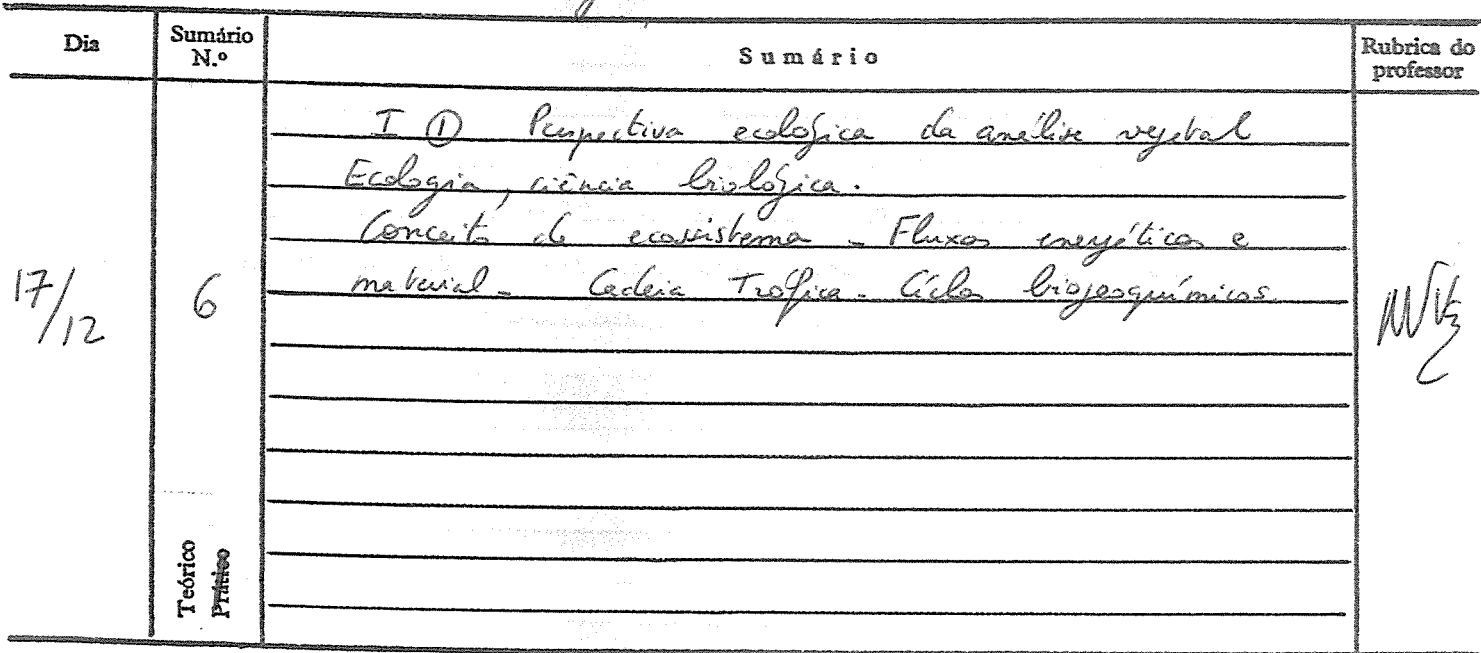 Dia
Sumário
N.º
Sumário
Rubrica do
professor
I ① Perspectiva ecológica da análise vegetal
Ecologia, ciência biológica.
Conceito de ecossistema - Fluxos energéticos e
material - Cadeia Trófica - Ciclos biogeoquímicos
17/12
6
Teórico
Prático